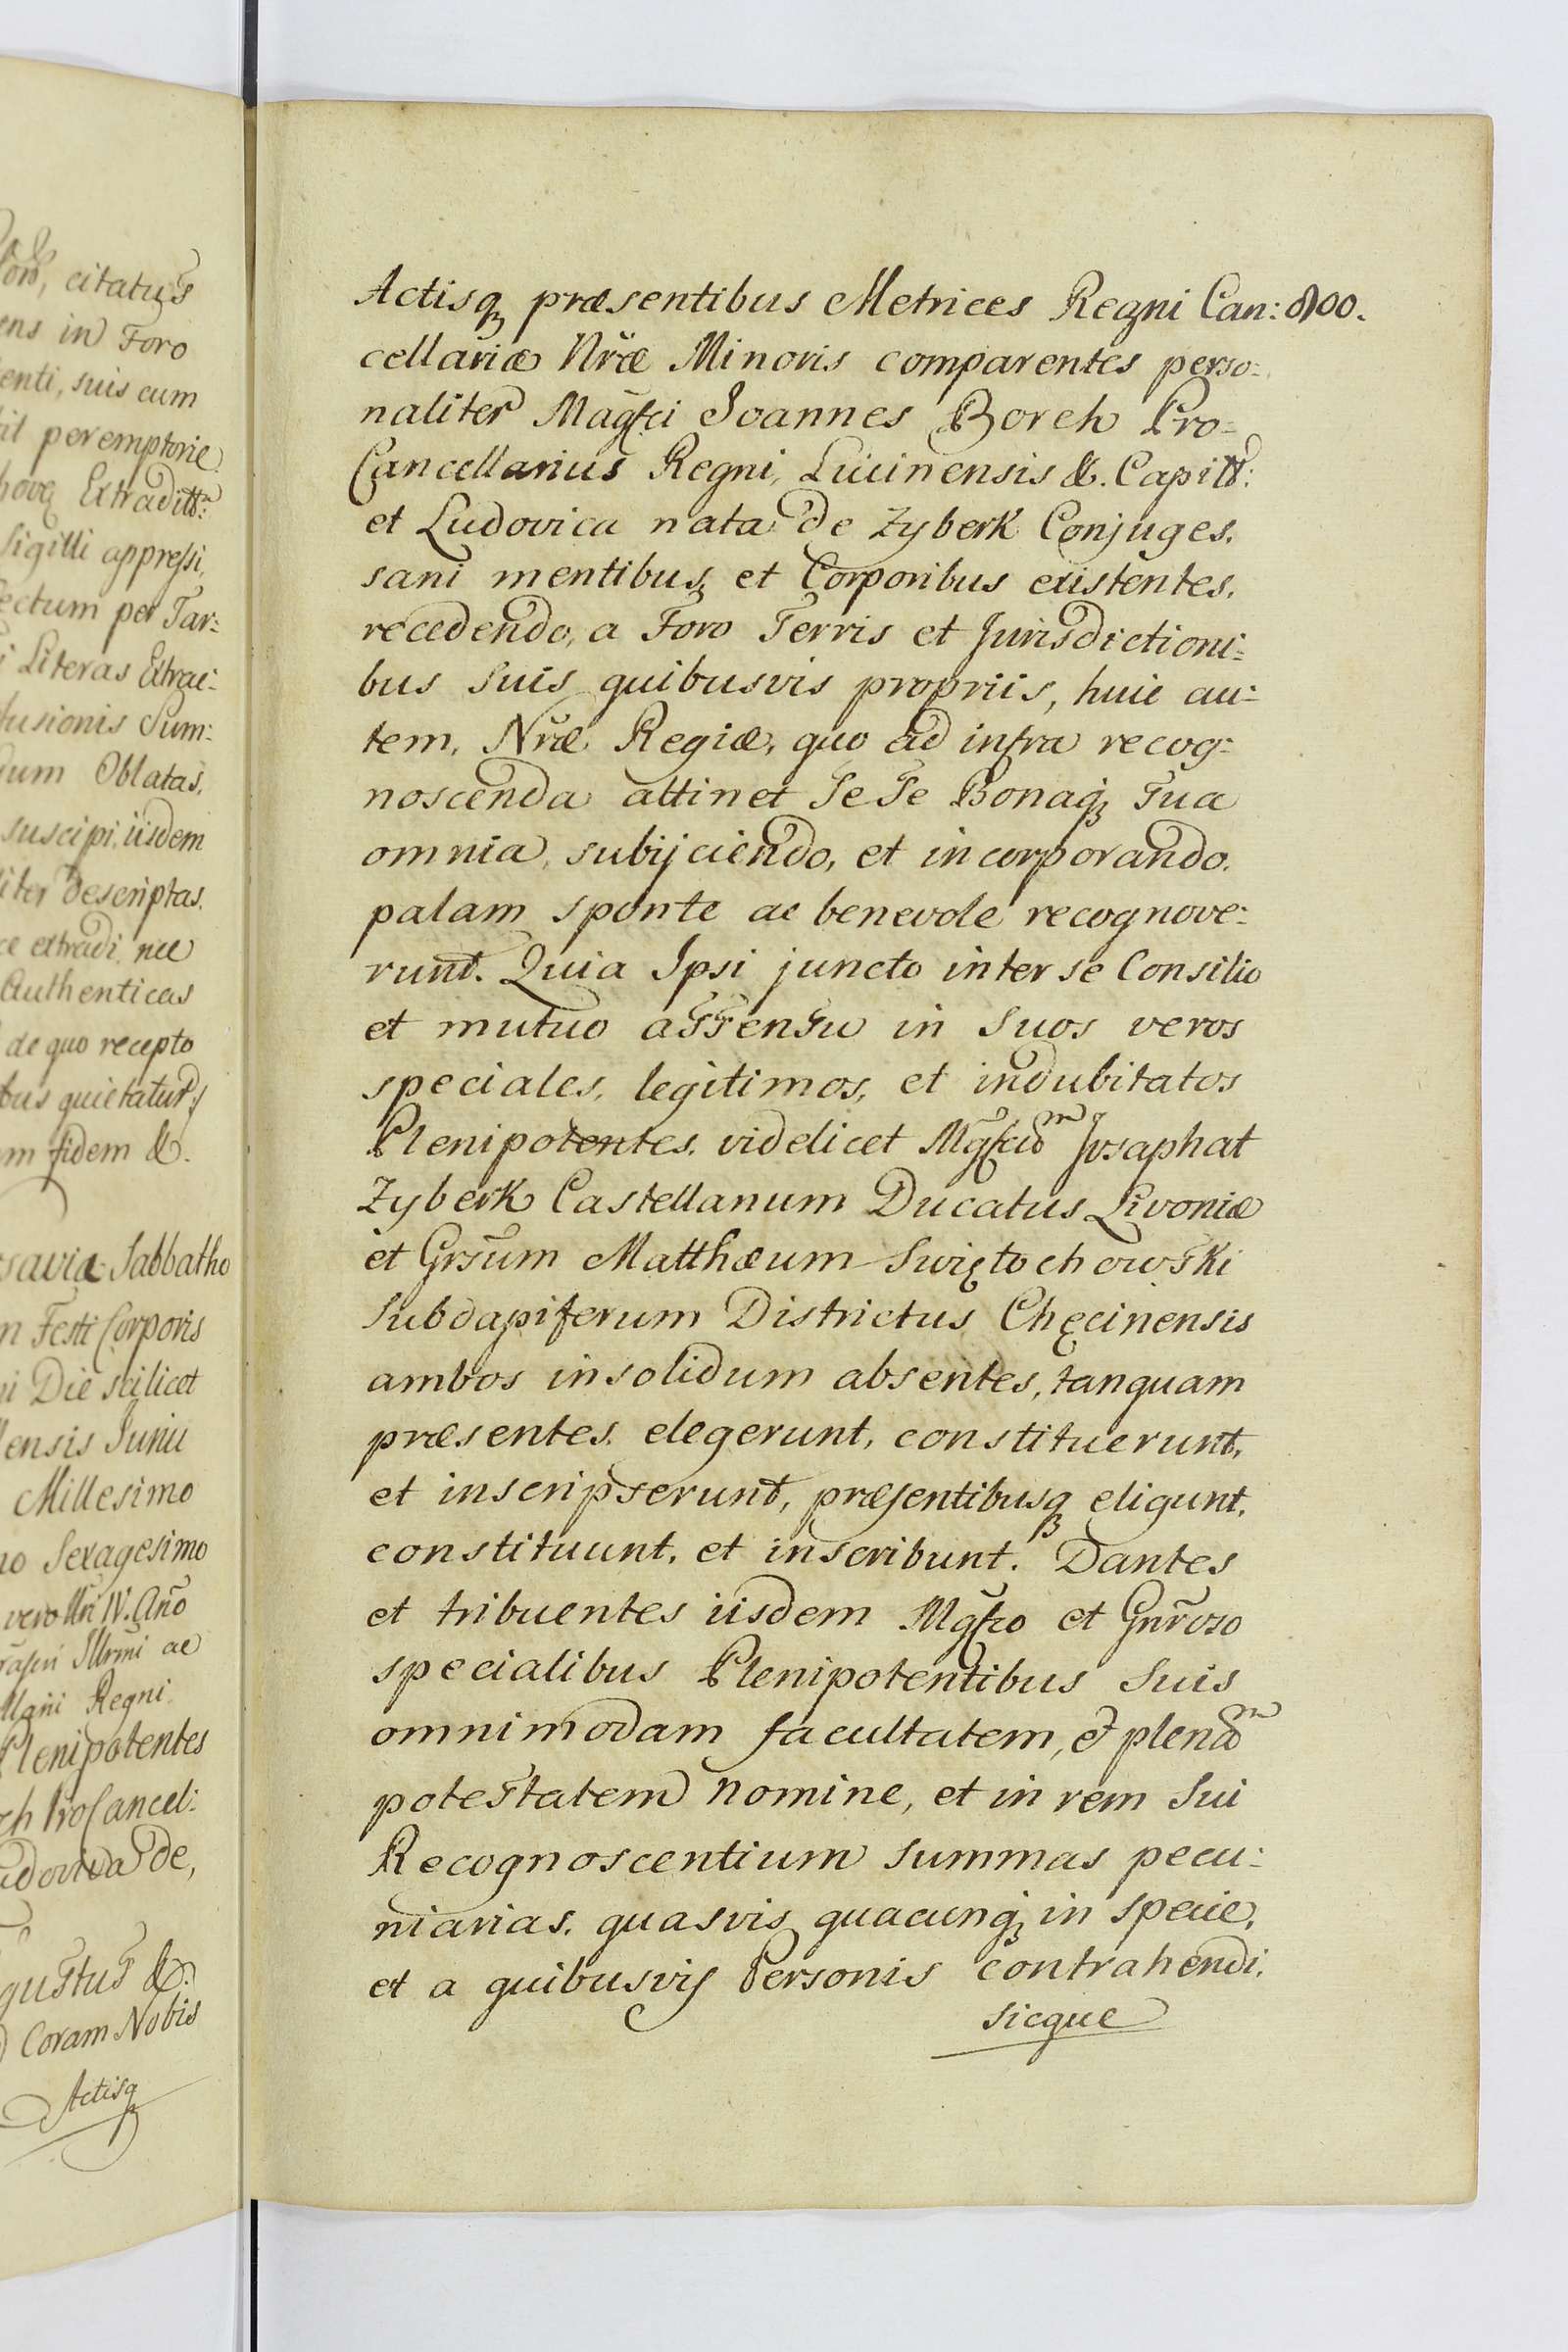 ond, citatus
ens in Foro
enti, suis cum
it peremptorie
hovq Extraditt:
Sigilli appressi,
ectum per Tar:
i Literas Extrac:
fusionis Sum:
dum Oblatas,
suscipi, iisdem
iter descriptas.
ce extradi nec
Authenticas
de quo recepto
bus quietatur,
m fidem &.
savia Sabbatho
n Festi Corporis
i Die scilicet
ensis Junii
Millesimo
no Sexagesimo
vero Mri IV. Ano
Illrmi ac
llarii Regni
Plenipotentes
ch ProCancel:
udovica de,
gustus &.
Coram Nobis
Actisq
Actisq præsentibus Metrices Regni Can: 800.
cellariæ Nræ Minoris comparentes perso:
naliter Magfci Joannes Borch Pro=
Cancellarius Regni, Lucinensis &. Capitt:
et Ludovica nata de Zyberk Conjuges,
sani mentibus, et Corporibus existentes,
recedendo, a Foro Terris et Jurisdictioni:
bus suis quibusvis propriis, huic au:
tem, Nræ Regiæ, quo ad infra recog:
noscenda attinet Se Se Bonaq Sua
omnia, subijciendo, et incorporando,
palam sponte ac benevole recognove:
runt. Quia Ipsi juncto inter se Consilio
et mutuo assensu in suos veros
speciales, legitimos, et indubitatos
Plenipotentes, videlicet Mgfcum Josaphat
Zyberk Castellanum Ducatus Livoniæ
et Grsum Matthæum Swiętochowski
Subdapiferum Districtus Chęcinensis
ambos insolidum absentes, tanquam
præsentes, elegerunt, constituerunt,
et inscripserunt, præsentibusq eligunt,
constituunt, et inscribunt. Dantes
et tribuentes iisdem Mgfco et Gnroso
specialibus Plenipotentibus suis
omnimodam facultatem, et plenam
potestatem nomine, et in rem sui
Recognoscentium summas pecu:
niarias, quasvis, quacunq in specie,
et a quibusvis Personis contrahendi,
sicque